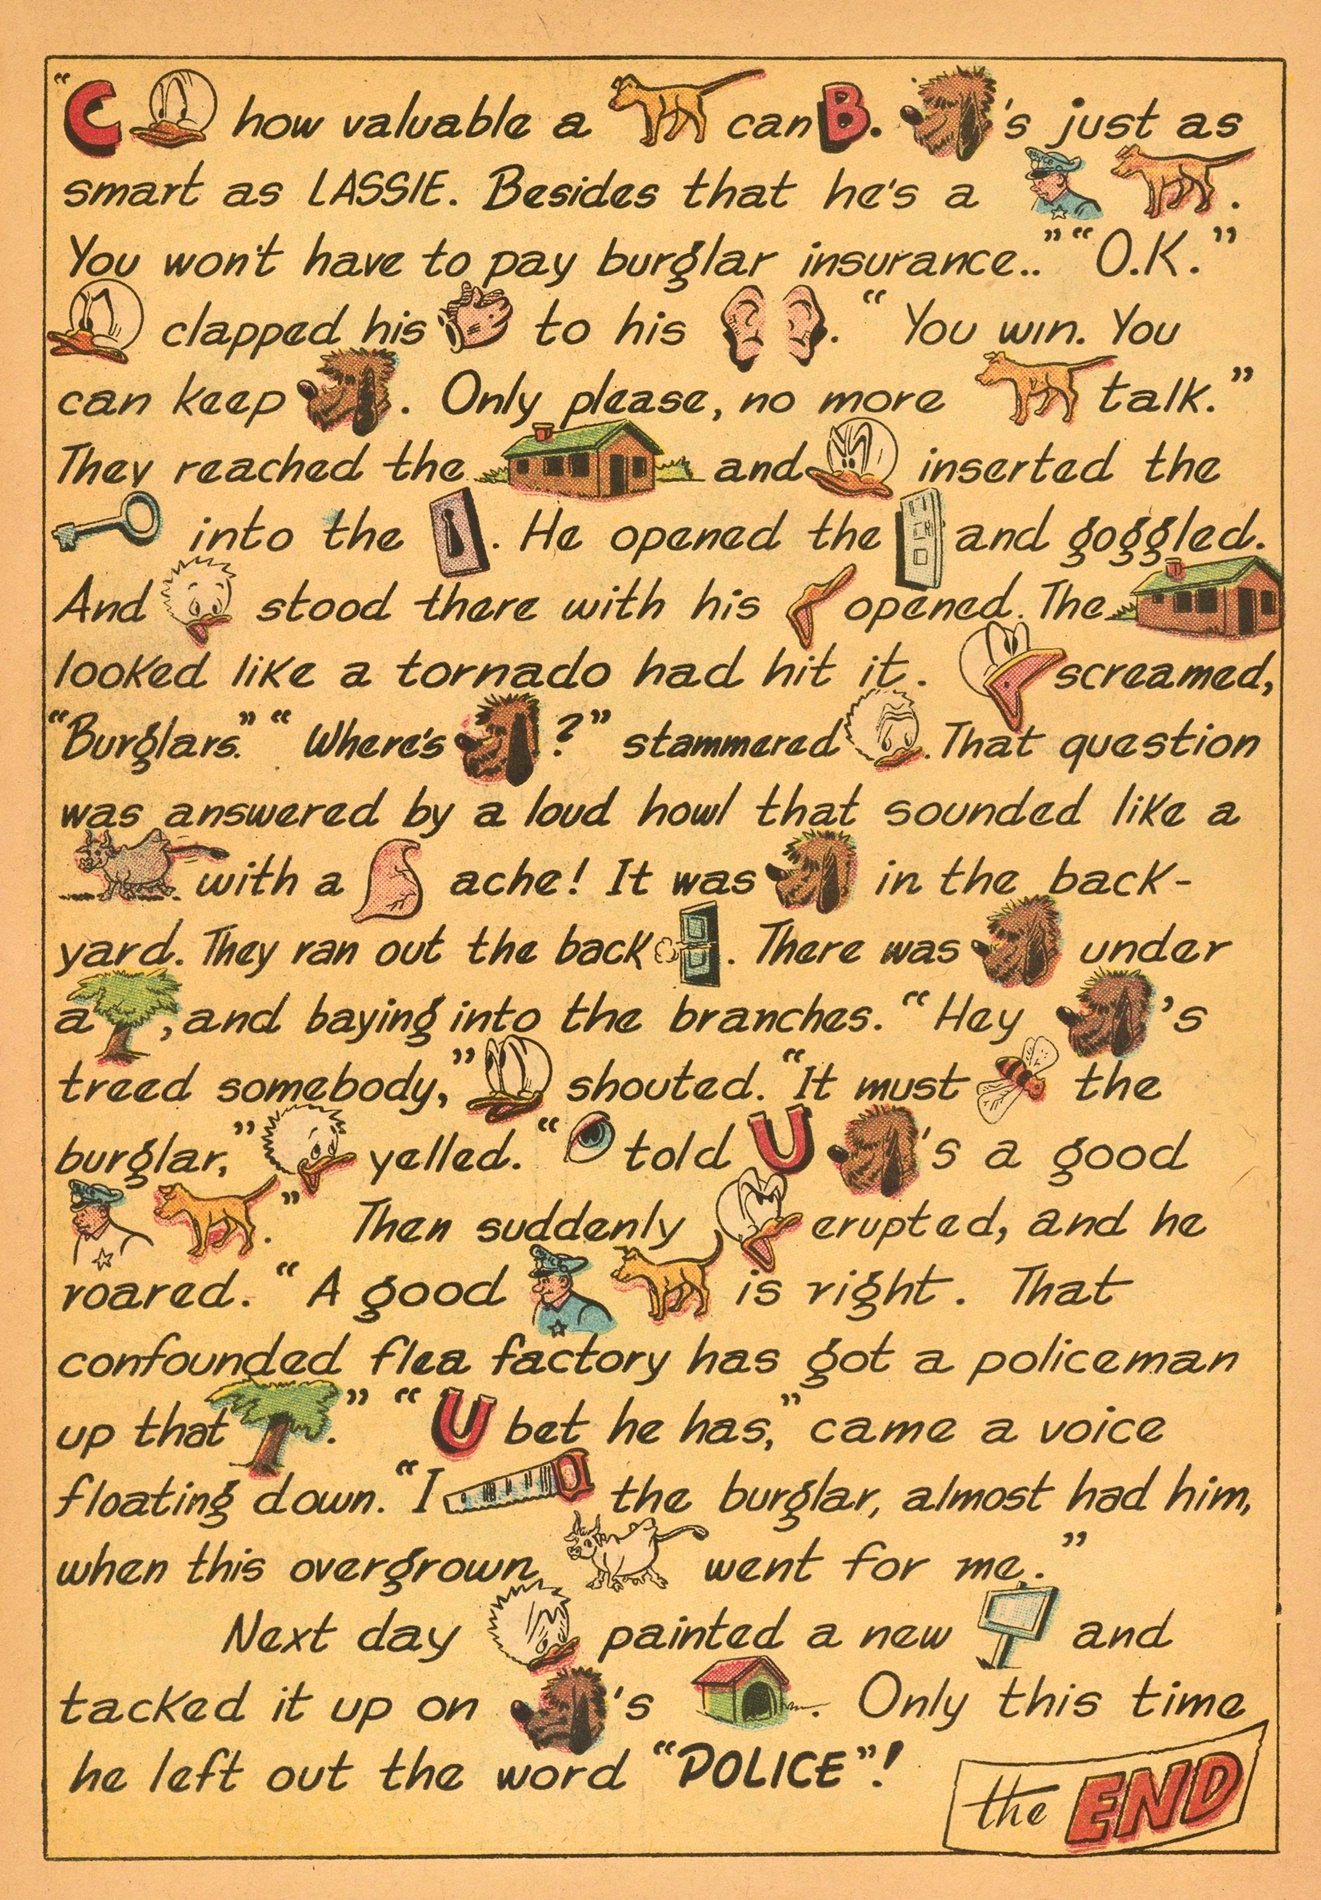 “C how valuable a can B. 's just as
smart as LASSIE. Besides that he's a .
You won't have to pay burglar insurance..” “O.K.”
clapped his to his . “You win. You
can keep . Only please, no more talk.”
They reached the and inserted the
into the . He opened the and goggled.
And stood there with his opened. The
looked like a tornado had hit it. screamed,
“Burglars.” “Where's ?” stammered . That question
was answered by a loud howl that sounded like a
with a ache! It was in the back-
yard. They ran out the back . There was under
a , and baying into the branches. “Hey 's
treed somebody,” shouted. “It must the
burglar,” yelled. “ told U 's a good
.” Then suddenly erupted, and he
roared. “A good is right. That
confounded flea factory has got a policeman
up that .” “U bet he has,” came a voice
floating down. “I the burglar, almost had him,
when this overgrown went for me.”
Next day painted a new and
tacked it up on 's . Only this time
he left out the word “POLICE”!
the END